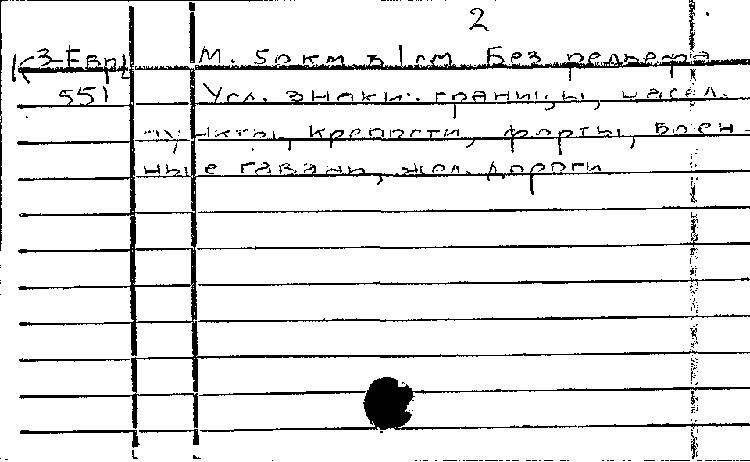 2
К 3-Евр
551
М. 50км в 1см Без рельефа
Усл. знаки: границы, насел.
пункты, крепости, форты, воен-
ные гавани, жел. дороги